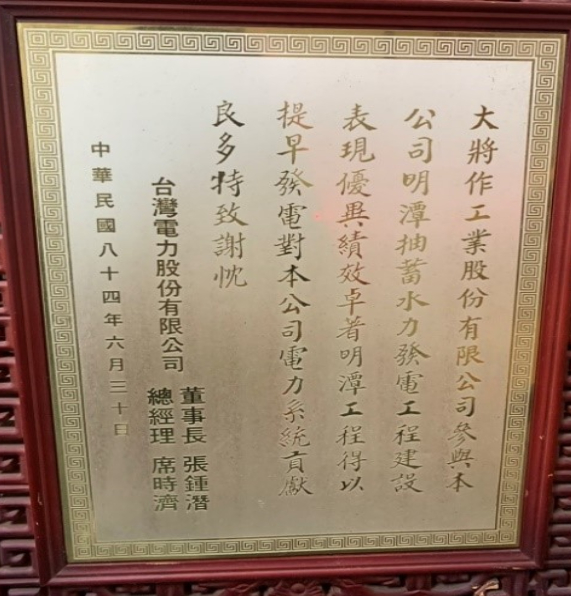 大將作工業股份有限公司參與本
公司明潭抽蓄水力發電工程建設
表現優異績效卓著明潭工程得以
提早發電對本公司電力系統貢獻
良多特致謝忱
台灣電力股份有限公司
董事長 張鍾潛
總經理 席時濟
中華民國八十四年六月三十日